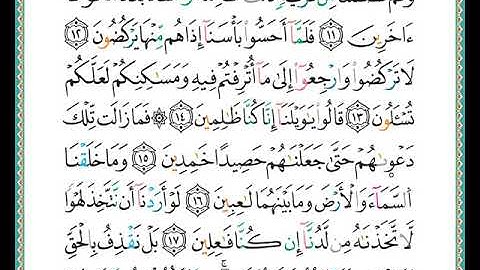 ءَاخَرِينَ ١١ فَلَمَّآ أَحَسُّوا۟ بَأْسَنَآ إِذَا هُم مِّنْهَا يَرْكُضُونَ ١٢
لَا تَرْكُضُوا۟ وَٱرْجِعُوٓا۟ إِلَىٰ مَآ أُتْرِفْتُمْ فِيهِ وَمَسَـٰكِنِكُمْ لَعَلَّكُمْ
تُسْـَٔلُونَ ١٣ قَالُوا۟ يَـٰوَيْلَنَآ إِنَّا كُنَّا ظَـٰلِمِينَ ١٤ ۞ فَمَا زَالَت تِّلْكَ
دَعْوَىٰهُمْ حَتَّىٰ جَعَلْنَـٰهُمْ حَصِيدًا خَـٰمِدِينَ ١٥ وَمَا خَلَقْنَا
ٱلسَّمَآءَ وَٱلْأَرْضَ وَمَا بَيْنَهُمَا لَـٰعِبِينَ ١٦ لَوْ أَرَدْنَآ أَن نَّتَّخِذَ لَهْوًا
لَّٱتَّخَذْنَـٰهُ مِن لَّدُنَّآ إِن كُنَّا فَـٰعِلِينَ ١٧ بَلْ نَقْذِفُ بِٱلْحَقِّ